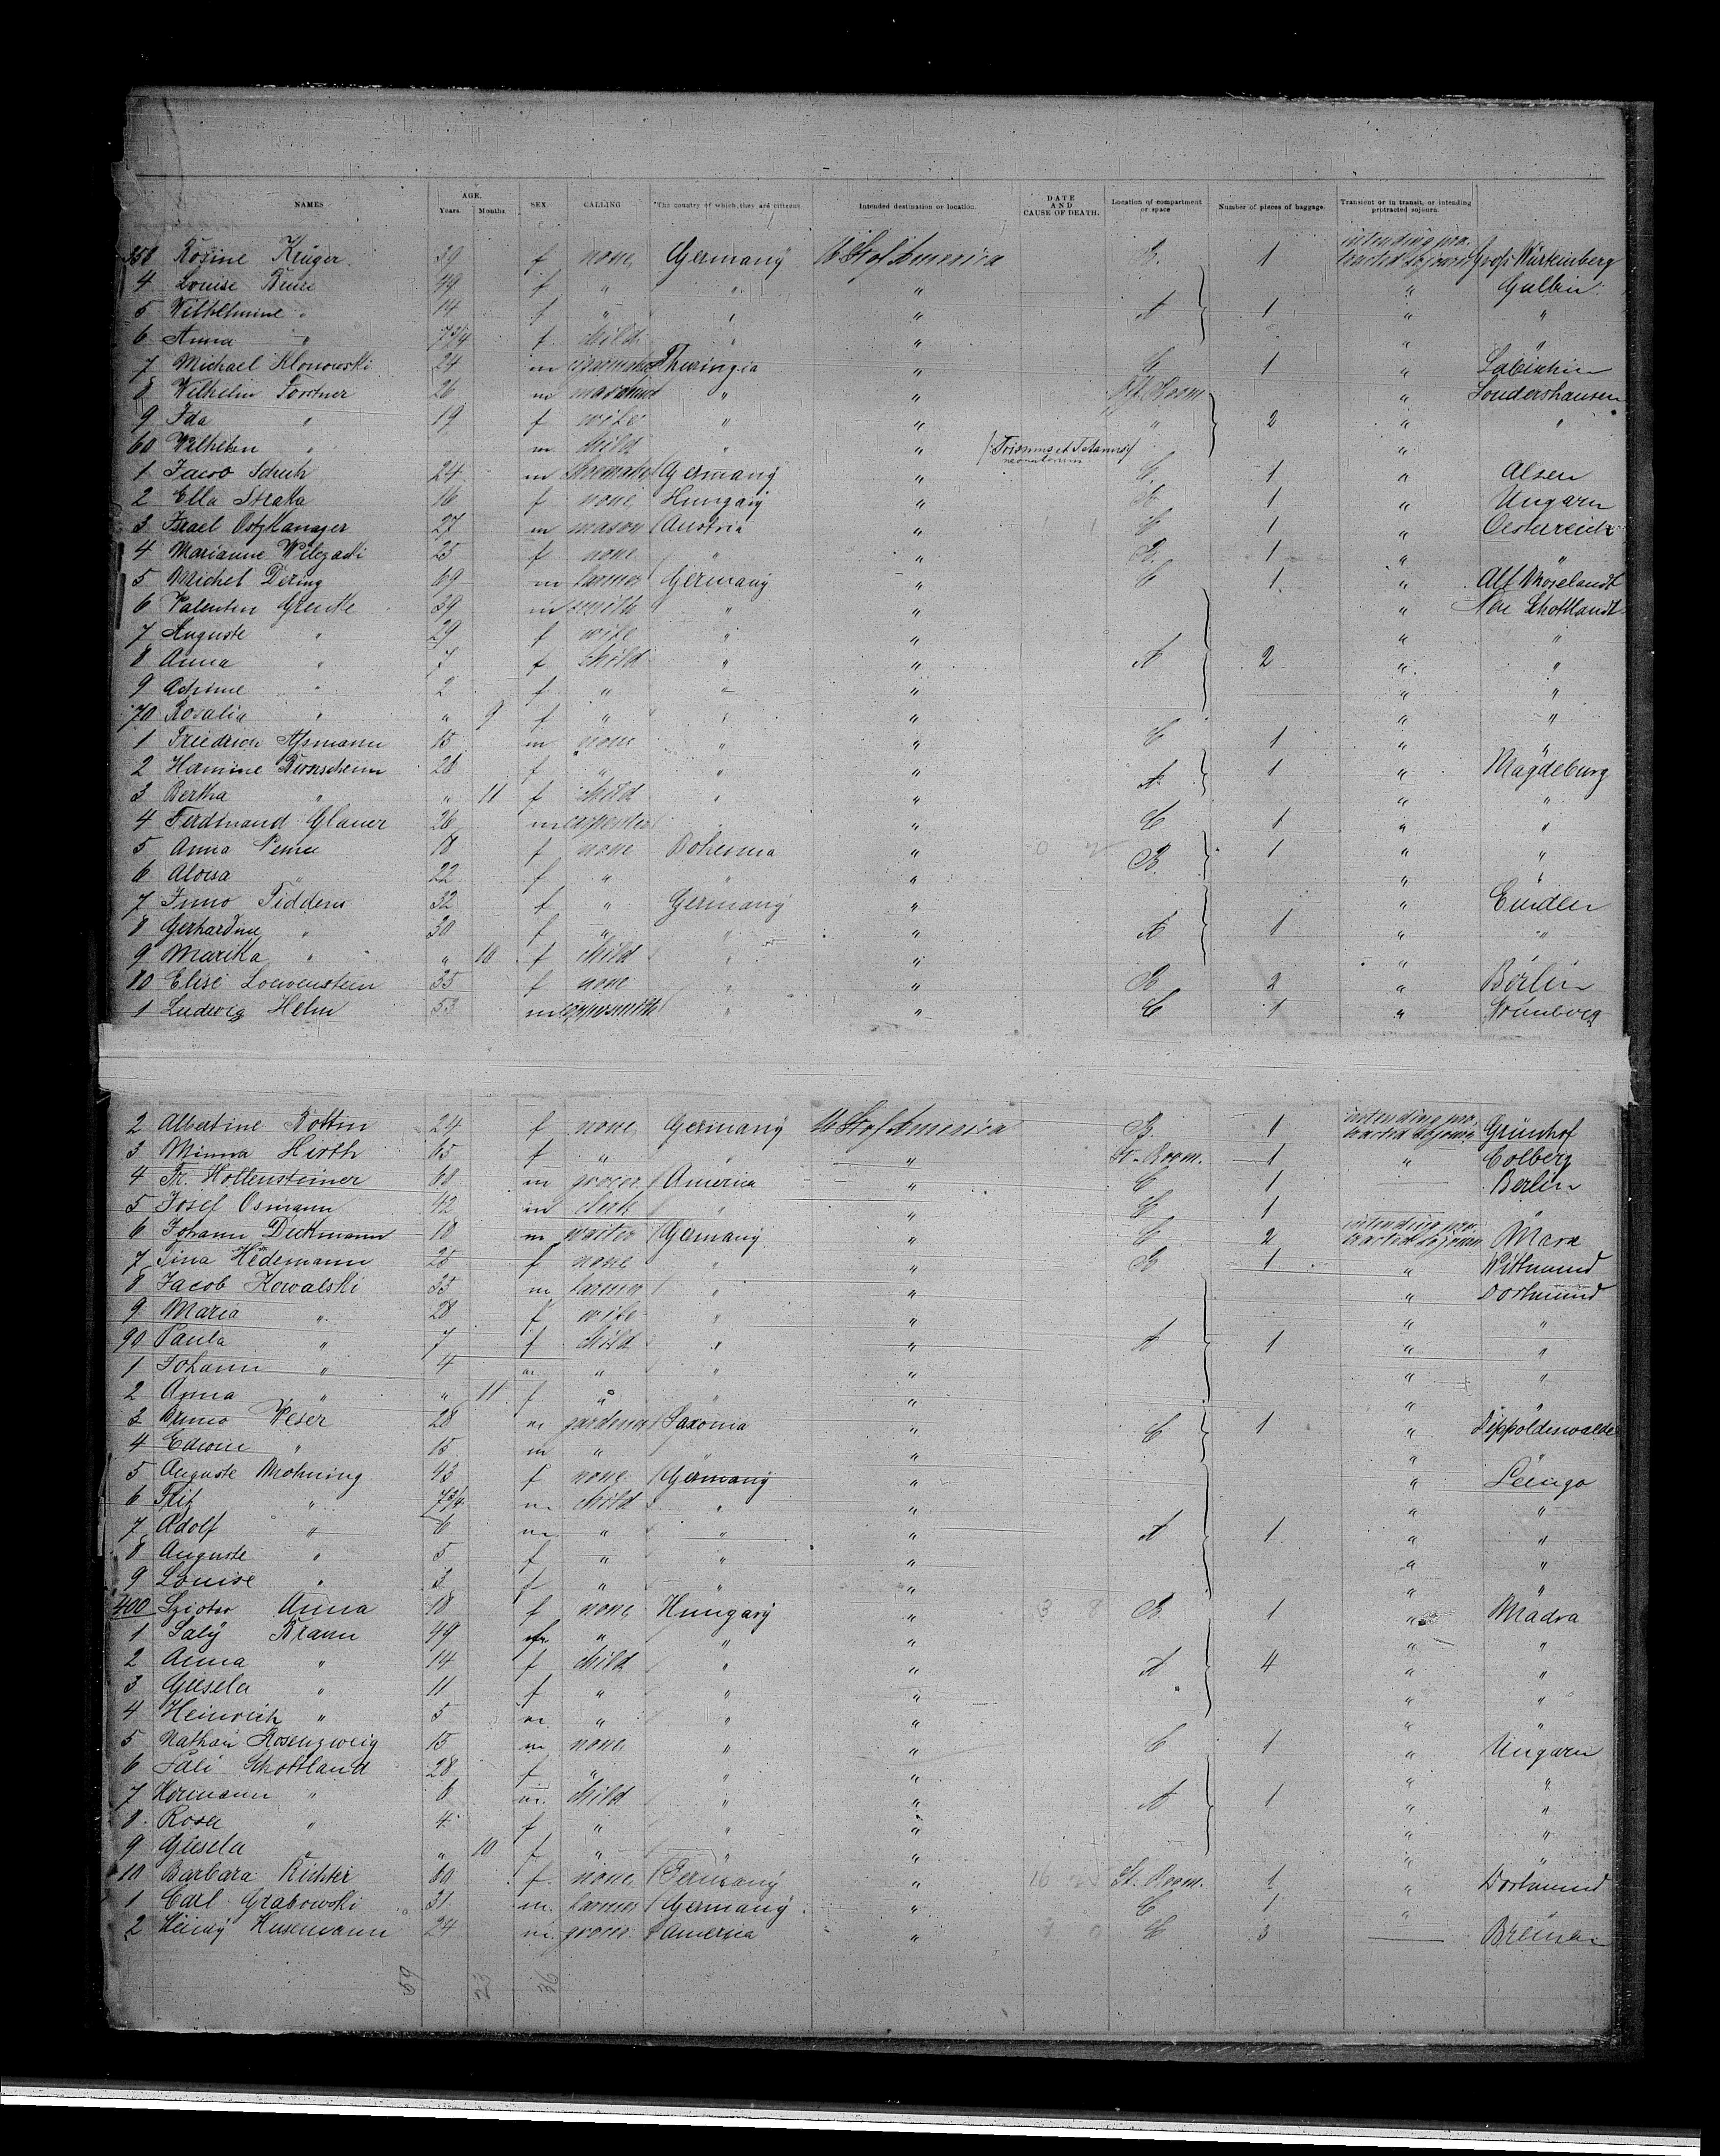 NAMES AGE. Years. Months. SEX CALLING *The country of which they are citizens. Intended destination or location. DATE AND CAUSE OF DEATH. Location of compartment or space Number of pieces of baggage. Transient or in transit, or intending protracted sojourn.
353 Rosine Krüger 39 f none Germany U St of America B. 1 intending protracted sojourn Gross Wartenberg
4 Louise 49 f " " " "
5 Wilhelmine " 14 f " " " A 1 " "
6 Anna " 7 3/4 f child " " " "
7 Michael Klonowski 24 m Thuringia " C 1 " Labischin
8 Wilhelm Forstner 26 m machinist " " St. Room " Sondershausen
9 Ida " 19 f wife " " " 2 " "
60 Wilhelm " m child " " Trismus et Tetanus neonatorum "
1 Jacob 24 m Germany " C. 1 " Alsen
2 Ella 16 f none Hungary " 1 " Ungarn
3 Israel 27 m mason Austria " C 1 " Oesterreich
4 Marianne 25 f none " " B. 1 " "
5 Michel Dering 69 m farmer Germany " C 1 " Alt
6 Valentin 39 m smith " " "
7 Auguste " 29 f wife " " " "
8 Anna " 7 f child " " A 2 " "
9 " 2 f " " " " "
70 Rosalia " " 9 f " " " " "
1 Friedrich Assmann 15 m none " " C 1 " "
2 Hermine 26 f " " " A 1 " Magdeburg
3 Bertha " " 11 f child " " " "
4 Ferdinand Glaner 26 m carpenter " C 1 " "
5 Anna 18 f none Bohemia " B 1 " "
6 Aloisa " 22 f " " " " "
7 Tiddens 32 f " Germany " " Emden
8 Gerhardine " 30 f " " " A 1 " "
9 Marika " " 10 f child " " "
80 Elise Loewenstein 35 f none " " B 2 " Berlin
1 Ludwig Helm 53 m coppersmith " " C 1 " Nürnberg
2 Albertine Bottin 24 f none Germany U St of America B. 1 intending protracted sojourn Grünhof
3 Minna Hirth 65 f " " " St. Room. 1 " Colberg
4 Fr. Hollensteiner 68 m grocer America " C 1 Berlin
5 Josef Osmann 42 m clerk " " C 1 "
6 Johann Dieckmann 18 m waiter Germany " C 2 intending protracted sojourn
7 Tina Hedemann 25 f none " " B 1 " Wittmund
8 Jacob Kowalski 35 m farmer " " " Dortmund
9 Maria " 28 f wife " " " "
90 Paula " 7 f child " " A 1 " "
1 Johann " 4 m " " " " "
2 Anna " " 11 f " " " " "
3 Bruno Weser 28 m gardener Saxonia " C 1 " Dippoldiswalde
4 Edwin " 15 m " " " " "
5 Auguste Mohning 43 f none Germany " "
6 Fritz " 7 3/4 m child " " " "
7 Adolf " 6 m " " " A 1 " "
8 Auguste " 5 f " " " " "
9 Louise " 3 f " " " " "
400 Anna 18 f none Hungary " 3 8 B 1 "
1 Saly Braun 49 " " " " "
2 Anna " 14 f child " " A 4 " "
3 Gisela " 11 f " " " " "
4 Heinrich " 5 m " " " " "
5 Nathan Rosenzweig 15 m none " " C 1 " Ungarn
6 Sali Schottland 28 f " " " " "
7 Hermann " 6 m child " " A 1 " "
8 Rosa " 4 f " " " " "
9 Gisela " " 10 f " " " " "
10 Barbara Richter 60 f none Germany " 16 St. Room. 1 " Dortmund
1 Carl Grabowski 31 m farmer Germany " C 1 "
2 Henry Husemann 24 m grocer America " C 3 Bremen
59 23 36